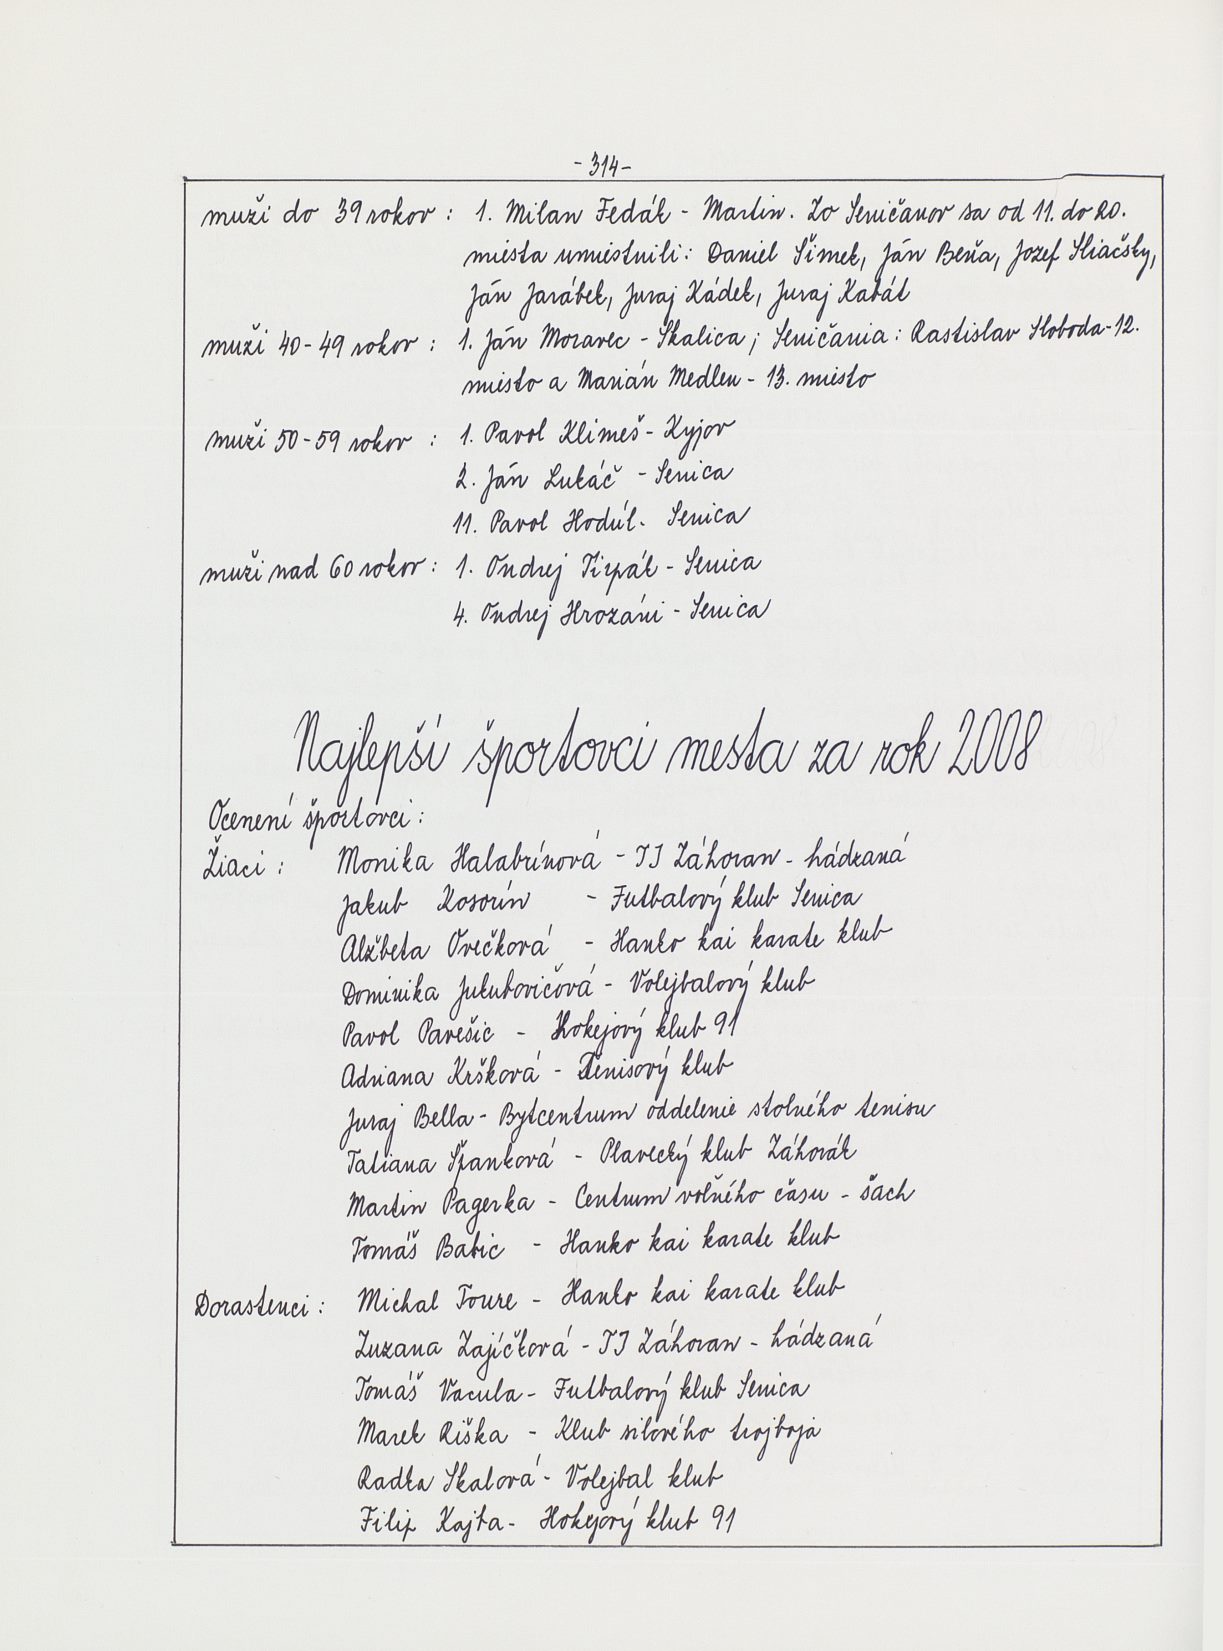 - 314 -
muži do 39 rokov : 1. Milan Fedák - Martin. Zo Seničanov sa od 11. do 20.
miesta umiestnili: Daniel Šimek, Ján Beňa, Jozef Sliačsky,
Ján Jarábek, Juraj Kádek, Juraj Kabát
muži 40 - 49 rokov : 1. Ján Moravec - Skalica ; Seničania : Rastislav Sloboda - 12.
miesto a Marián Medlen - 13. miesto
muži 50 - 59 rokov : 1. Pavol Klimeš - Kyjov
2. Ján Lukáč - Senica
11. Pavol Hodúl - Senica
muži nad 60 rokov : 1. Ondrej Tirpák - Senica
4. Ondrej Hrozáni - Senica
Najlepší športovci mesta za rok 2008
Ocenení športovci :
Žiaci : Monika Halabrínová - TJ Záhoran - hádzaná
Jakub Kosorín - Futbalový klub Senica
Alžbeta Ovečková - Hanko kai karate klub
Dominika Jukubovičová - Volejbalový klub
Pavol Pavešic - Hokejový klub 91
Adriana Kršková - Tenisový klub
Juraj Bella - Bytcentrum oddelenie stolného tenisu
Tatiana Španková - Plavecký klub Záhorák
Martin Pagerka - Centrum voľného času - šach
Tomáš Babic - Hanko kai karate klub
Dorastenci : Michal Toure - Hanko kai karate klub
Zuzana Zajíčková - TJ Záhoran - hádzaná
Tomáš Vacula - Futbalový klub Senica
Marek Riška - Klub silového trojboja
Radka Skalová - Volejbal klub
Filip Kajba - Hokejový klub 91